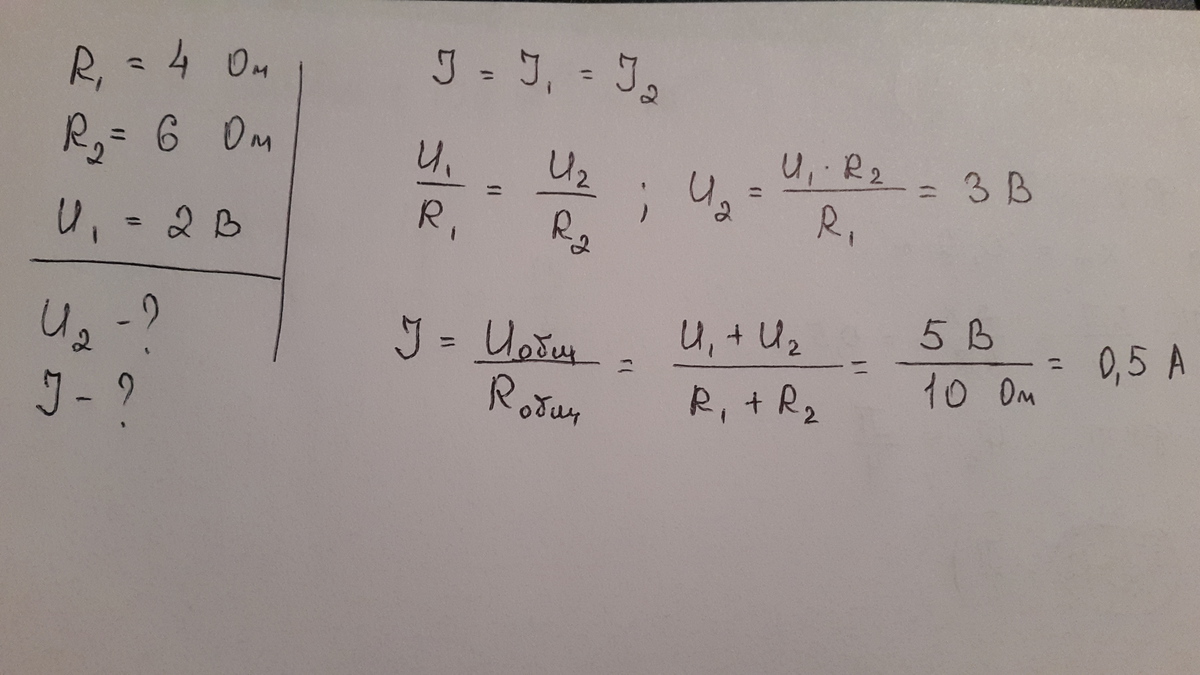 R₁ = 4 Ом
R₂ = 6 Ом
U₁ = 2 В
U₂ - ?
J - ?
J = J₁ = J₂
U₁/R₁ = U₂/R₂ ; U₂ = U₁ · R₂/R₁ = 3 В
J = Uобщ/Rобщ = U₁ + U₂/R₁ + R₂ = 5 В/10 Ом = 0,5 А